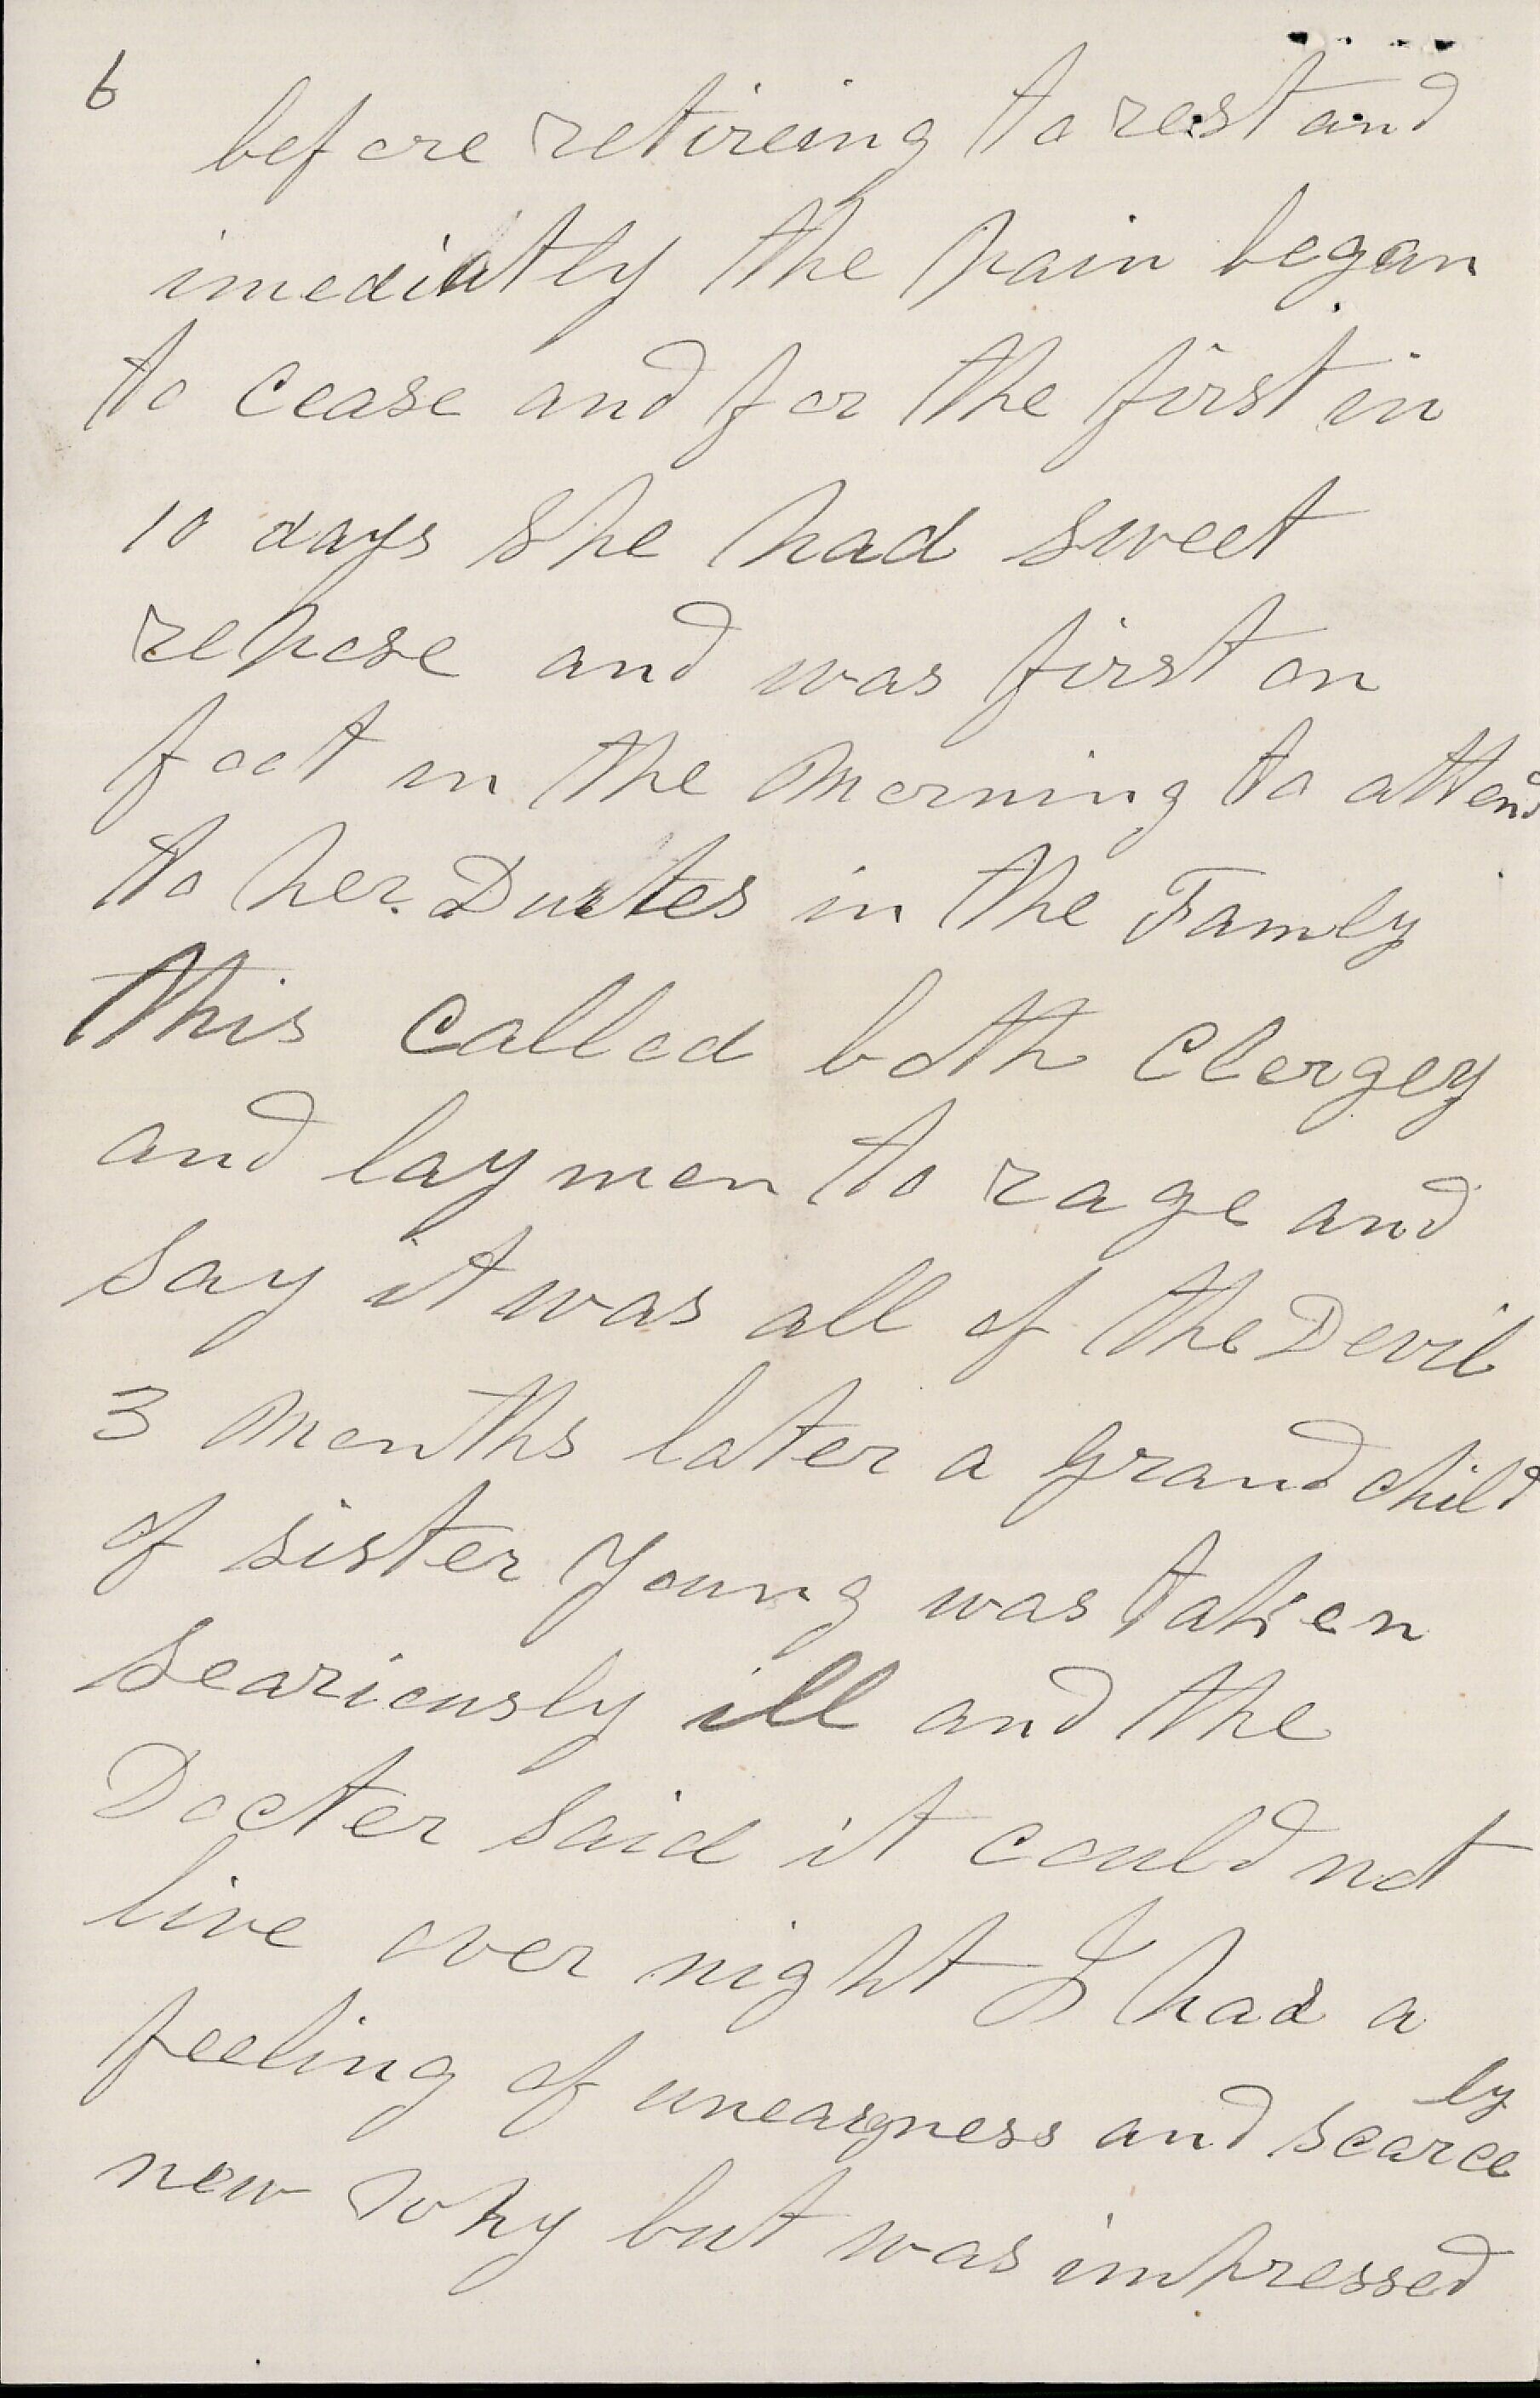 6
before retireing to rest and
imediatly the pain began
to cease and for the first in
10 days She had sweet
repose and was first on
foot in the morning to attend
to her Duites in the Famly
this Called both Clergey
and laymen to rage and
say it was all of the Devil
3 months later a grand child
of sister Young was taken
seariously ill and the
Docter said it could not
live over night I had a
feeling of uneasyness and scarcely
new why but was impressed